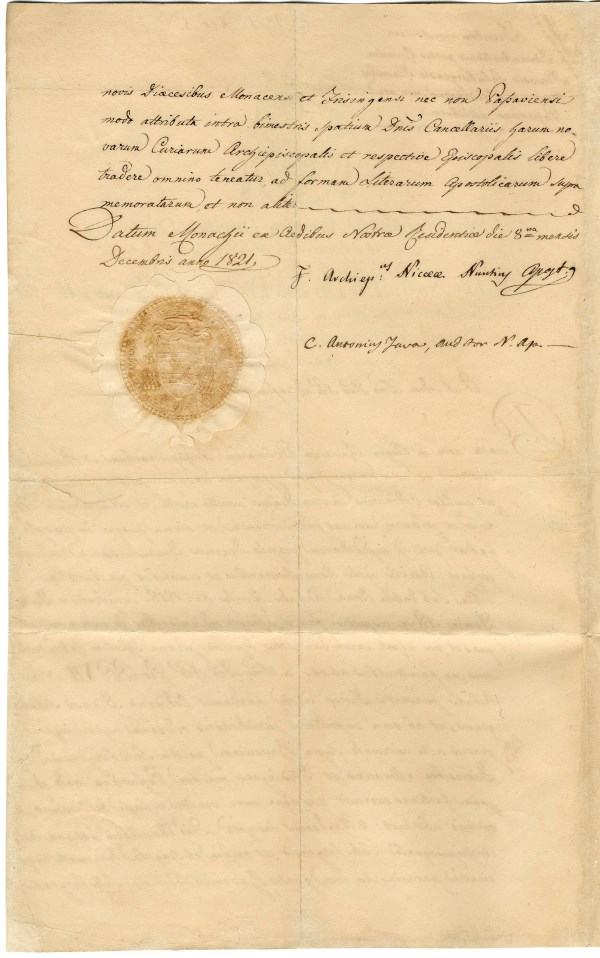 novis Diœcesibus Monacensi et Frisingensi nec non Passaviensi
modo attributa intra bimestris spatium Dnis Cancellariis harum no-
varum Curiarum Archiepiscopalis et respective Episcopalis libere
tradere omnino teneatur ad formam Literarum Apostolicarum supra
memoratarum et non aliter
Datum Monachii ex Aedibus Nostræ Residentiæ die 8va mensis
Decembris anno 1821,
F. Archiep.us Nicææ Nuntius Apost.
C. Antonius Java, auditor N. Ap.